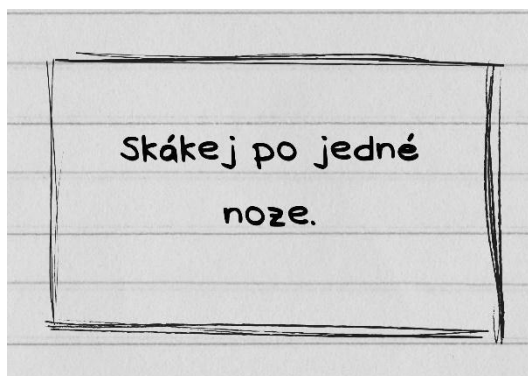 Skákej po jedné
noze.